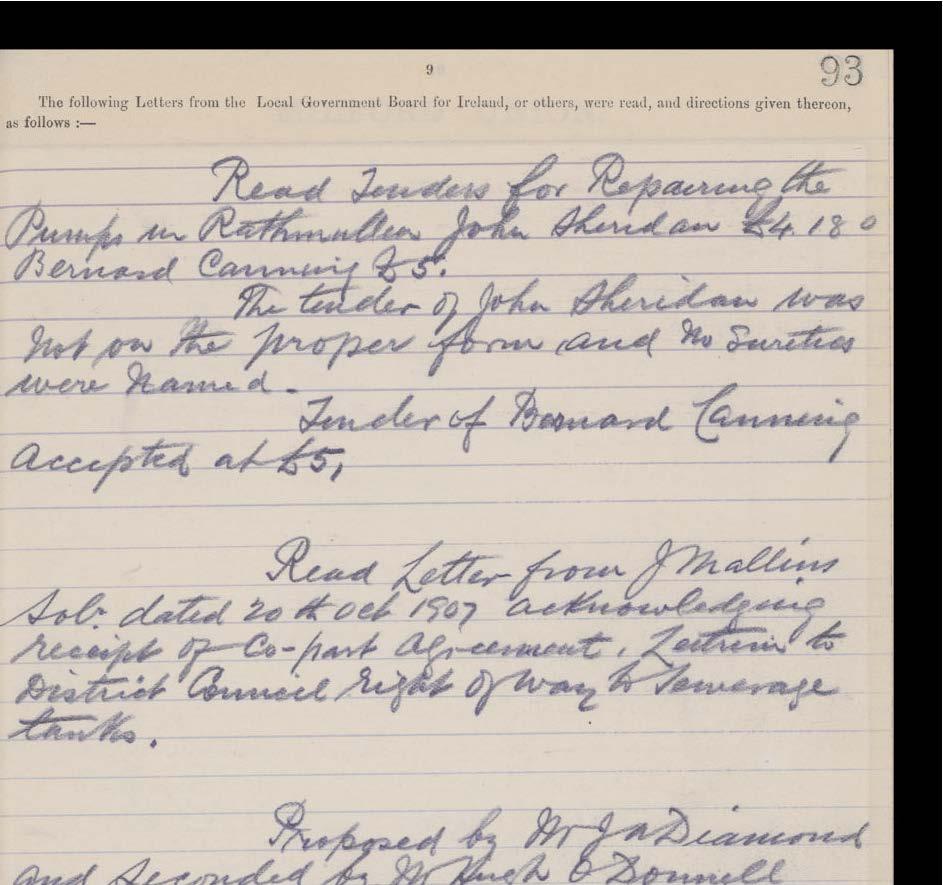 9
93
The following Letters from the Local Government Board for Ireland, or others, were read, and directions given thereon,
as follows :—
Read Tenders for Repairing the
Pumps in Rathmullen John Sheridan £4. 18 0
Bernard Canning £5.
The tender of John Sheridan was
Not on the proper form and No Sureties
were Named.
Tender of Bernard Canning
Accepted at £5,
Read Letter from J Mallins
Solr. dated 20th Oct 1907 acknowledging
receipt of Co-part Agreement. Leitrim to
District Council Right of Way to Sewerage
tanks.
Proposed by Mr J A Diamond
and Seconded by Mr Hugh O'Donnell